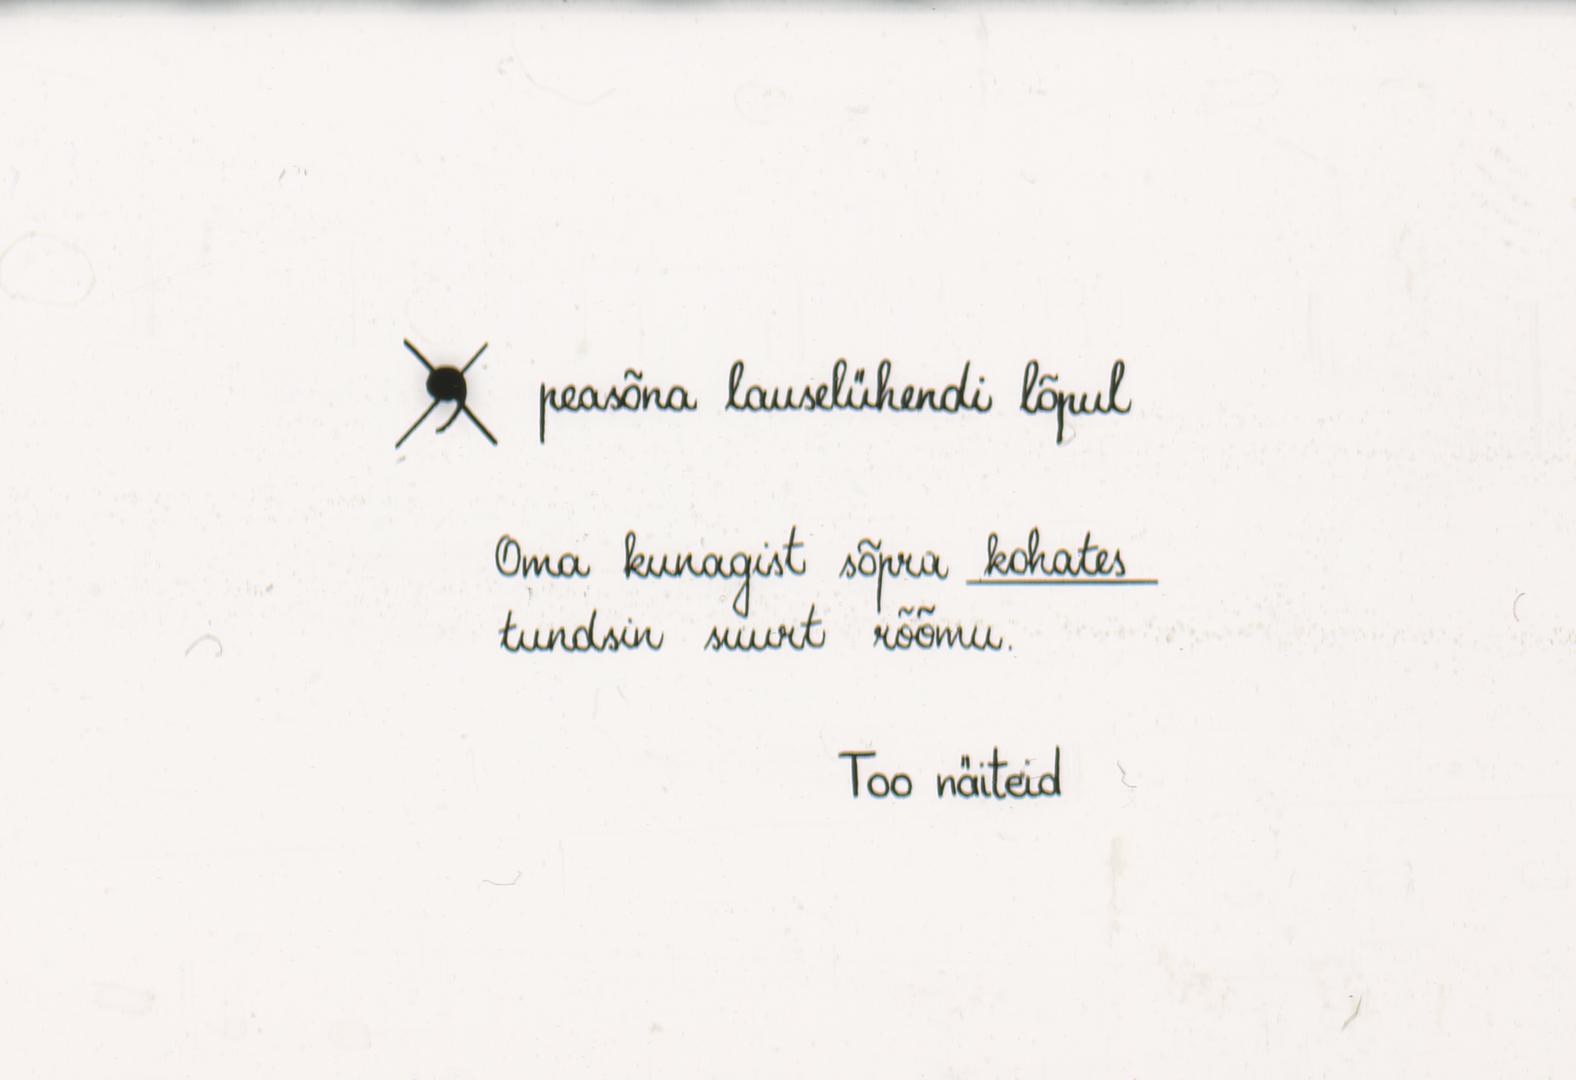 peasõna lauselühendi lõpul
Oma kunagist sõpra kohates
tundsin suurt rõõmu.
Too näiteid